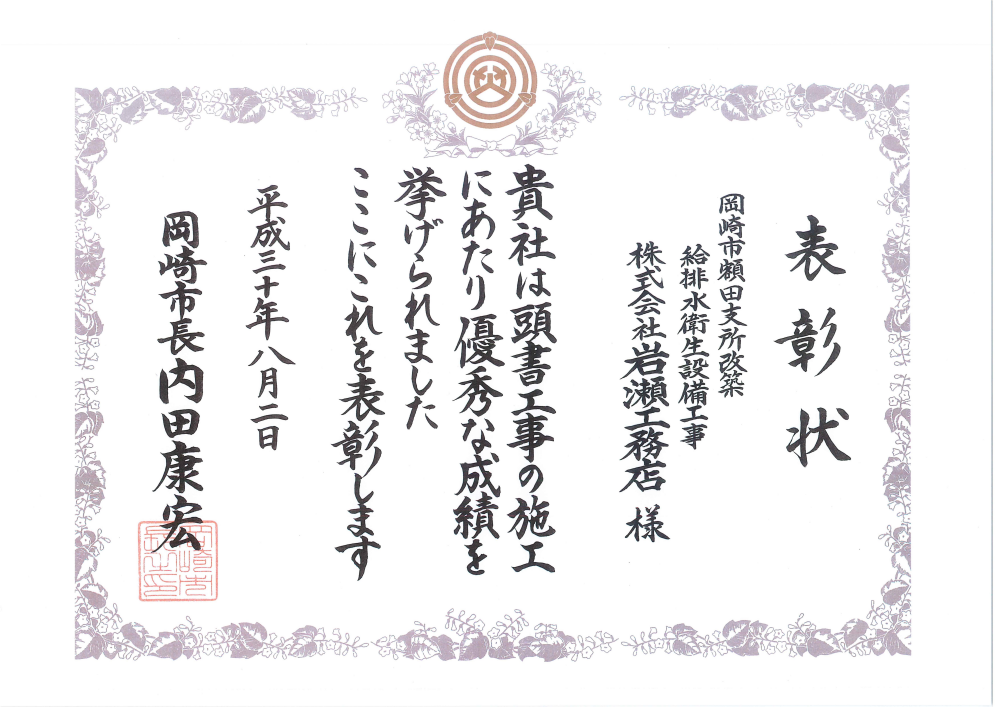 表彰状
岡崎市額田支所改築
給排水衛生設備工事
株式会社岩瀬工務店 様
貴社は頭書工事の施工
にあたり優秀な成績を
挙げられました
ここにこれを表彰します
平成三十年八月二日
岡崎市長内田康宏